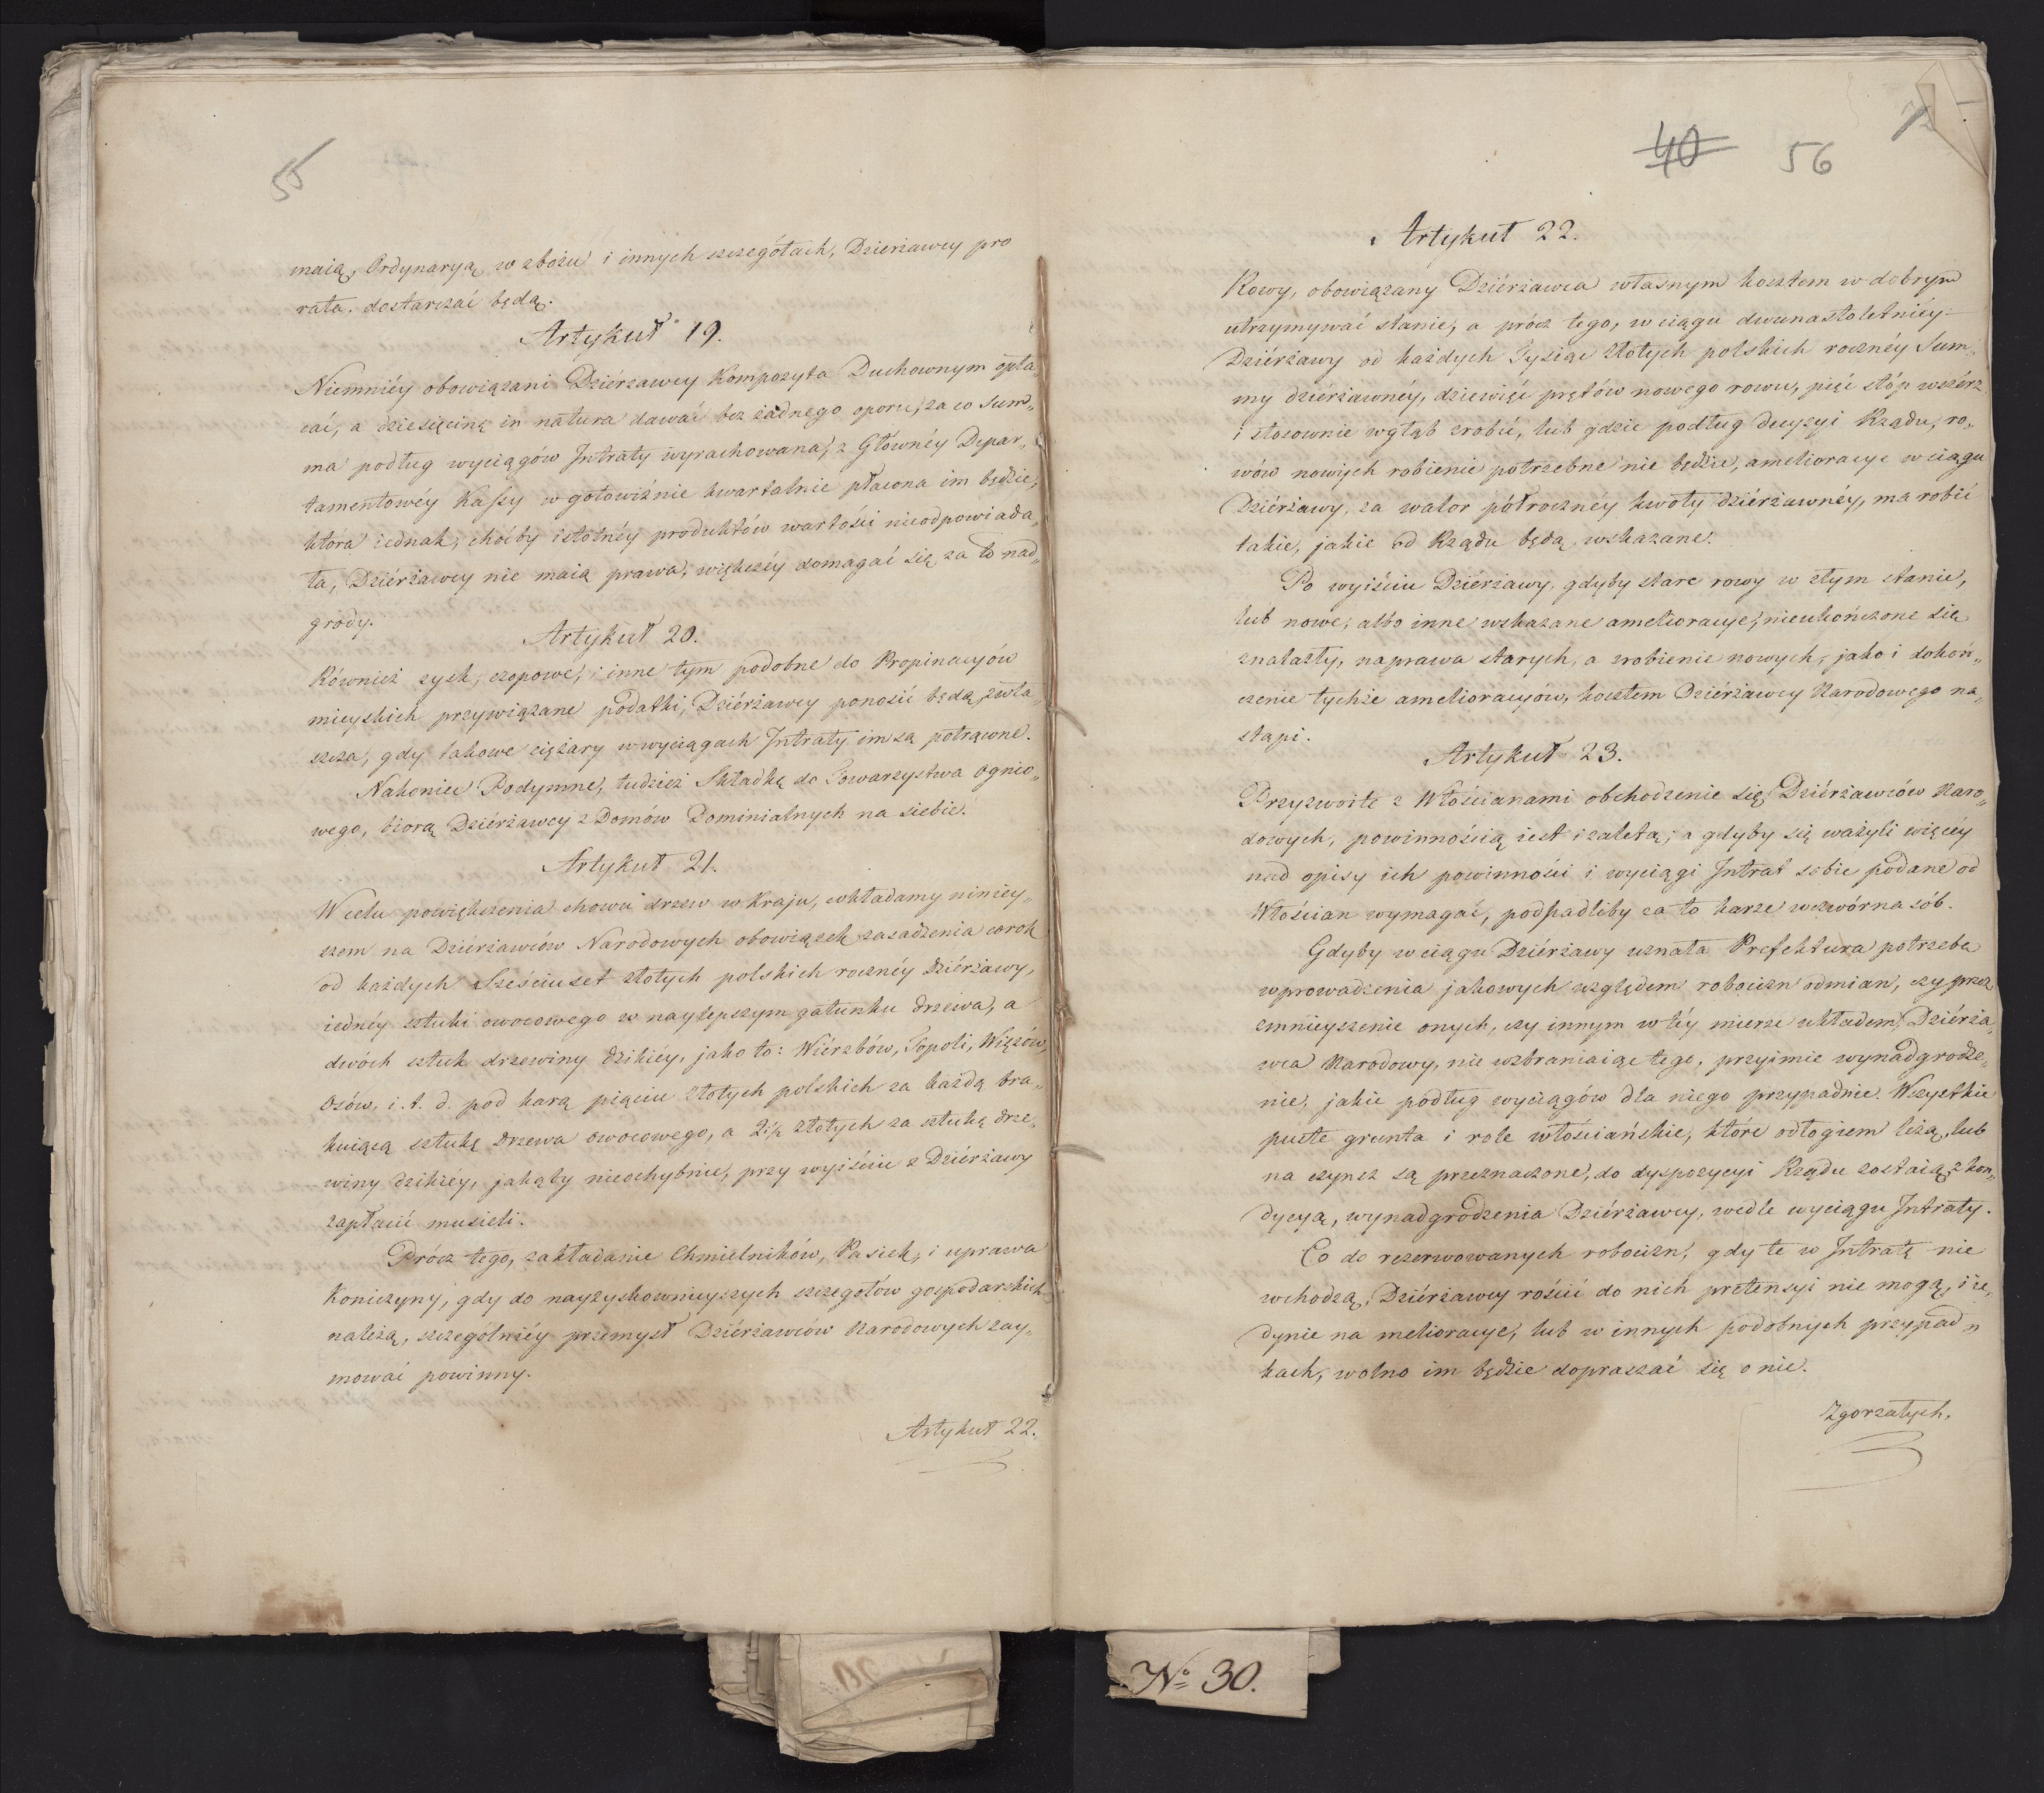 55
maią, Ordynaryą w zbożu i innych szczegółach, Dzierżawcy pro
rata, dostarczać będą.
Artykuł 19.
Niemniéy obowiązani Dziérżawcy Kompozyta Duchownym opła„
cać, a dziesięcinę in natura dawać bez żadnego oporu, za co Sum„
ma podług wyciągów Intraty wyrachowana, z Głównéy Depar„
tamentowéy Kassy w gotowiźnie kwartalnie płacona im będzie,
która iednak, choćby istotnéy produktów wartości nieodpowiada„
ła, Dziérżawcy nie maią prawa, większéy domagać się za to nad„
grody.
Artykuł 20.
Również zysk, czopowe, i inne tym podobne do Propinacyów
mieyskich przywiązane podatki, Dziérżawcy ponosić będą, zwła„
szcza, gdy takowe ciężary w wyciągach Intraty im są potrącone.
Nakoniec Podymne, tudzież Składkę do Towarzystwa Ognio„
wego, biorą Dziérżawcy z Domów Dominialnych na siebie.
Artykuł 21.
W celu powiększenia chowu drzew w Kraju, wkładamy niniey„
szem na Dziérżawców Narodowych obowiązek zasadzenia corok
od każdych Sześciuset złotych polskich rocznéy Dziérżawy,
iednéy sztuki owocowego w naylepszym gatunku drzewa, a
dwóch sztuk drzewiny dzikiéy, jako to: Wiérzbów, Topoli, Wiązów,
Osów, i. t. d. pod karą pięciu Złotych polskich za każdą bra„
kuiącą sztukę Drzewa owocowego, a 2½ Złotych za sztukę drze„
winy dzikiéy, jakąby nieochybnie, przy wyiściu z Dziérżawy
zapłacić musieli.
Prócz tego, zakładanie Chmielników, Pasiek, i uprawa
Koniczyny, gdy do nayzyskownieyszych szczegółów gospodarskich
należą, szczególniéy przemysł Dziérżawców Narodowych zay„
mować powinny.
Artykuł 22.
40 56
Artykuł 22.
Rowy, obowiązany Dziérżawca własnym kosztem w dobrym
utrzymywać stanie, a prócz tego, w ciągu dwunastoletniéy
Dziérżawy od każdych Tysiąc Złotych polskich rocznéy Sum„
my dziérżawnéy, dziewięć prętów nowego rowu, pięć stóp wszérz
i stosownie wgłąb zrobić, lub gdzie podług decyzyi Rządu, ro„
wów nowych robienie potrzebne nie będzie, amelioracye w ciągu
Dziérżawy, za walor półrocznéy kwoty dziérżawnéy, ma robić
takie, jakie od Rządu będą wskazane.
Po wyiściu Dziérżawy, gdyby stare rowy w złym stanie,
lub nowe, albo inne wskazane amelioracye, nieukończone się
znalazły, naprawa starych, a zrobienie nowych, jako i dokoń„
czenie tychże amelioracyów, kosztem Dziérżawcy Narodowego na„
stąpi.
Artykuł 23.
Przyzwoite z Włościanami obchodzenie się Dziérżawców Naro„
dowych, powinnością iest i zaletą; a gdyby się ważyli więcéy
nad opisy ich powinności i wyciągi Intrat sobie podane od
Włościan wymagać, podpadliby za to karze wczwórnasób.
Gdyby w ciągu Dziérżawy uznała Prefektura potrzebę
wprowadzenia jakowych względem robocizn odmian, czy przez
zmnieyszenie onych, czy innym w téy mierze układem, Dziérża„
wca Narodowy, nie wzbraniaiąc tego, przyimie wynadgrodze„
nie, jakie podług wyciągów dla niego przypadnie. Wszystkie
puste grunta i role włościańskie, które odłogiem leżą, lub
na czynsz są przeznaczone, do dyspozycyi Rządu zostaią, z kon„
dycyą, wynadgrodzenia Dziérżawcy, wedle wyciągu Intraty.
Co do rezerwowanych robocizn, gdy te w Intratę nie
wchodzą, Dziérżawcy rościć do nich pretensyi nie mogą, i ie„
dynie na melioracye, lub w innych podobnych przypad„
kach, wolno im będzie dopraszać się o nie.
Zgorzałych.
No 30.